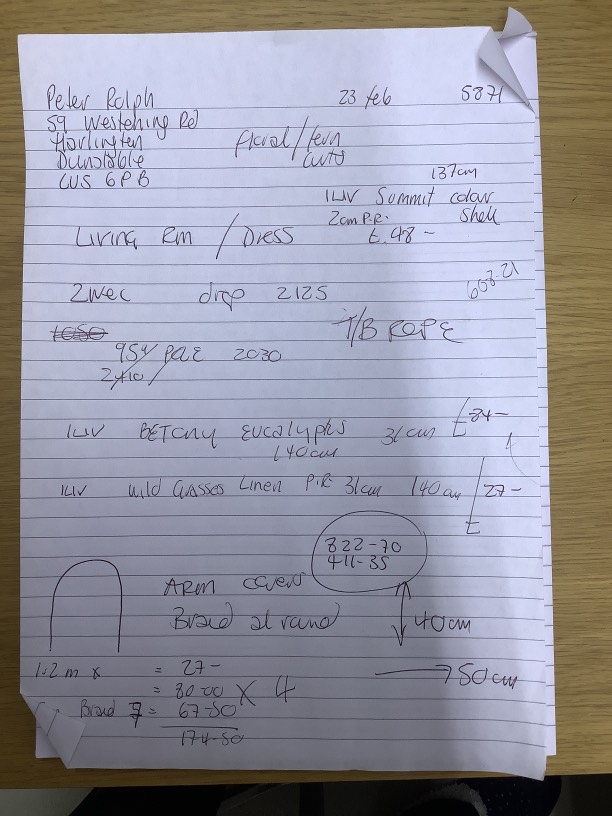 Peter Ralph 23 feb 5871
59 Westening Rd
Harlington floral/fern
Dunstable
LU5 6PB
137cm
ILIV Summit colour
2cm P.R. Shell
£48-
Living Rm / Dress
2 wec drop 2125 608-21
1050 T/B ROPE
95y pole 2030
2410
ILIV BETONY Eucalyptus 31cm £24-
140cm
ILIV Wild Grasses Linen P.R 31cm 140cm £27-
822-70
411-35
ARM covers
Braid at round 40cm
1.2m x = 27- 50cm
= 80-00 x 4
Braid 7 = 67-50
174-50